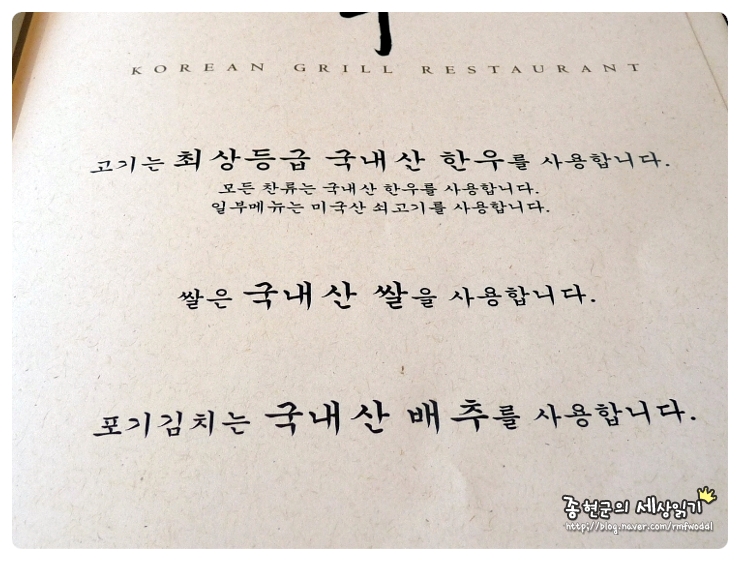 KOREAN GRILL RESTAURANT
고기는 최상등급 국내산 한우를 사용합니다.
모든 찬류는 국내산 한우를 사용합니다.
일부메뉴는 미국산 쇠고기를 사용합니다.
쌀은 국내산 쌀을 사용합니다.
포기김치는 국내산 배추를 사용합니다.
종현군의 세상읽기
http://blog.naver.com/rmfwoddl